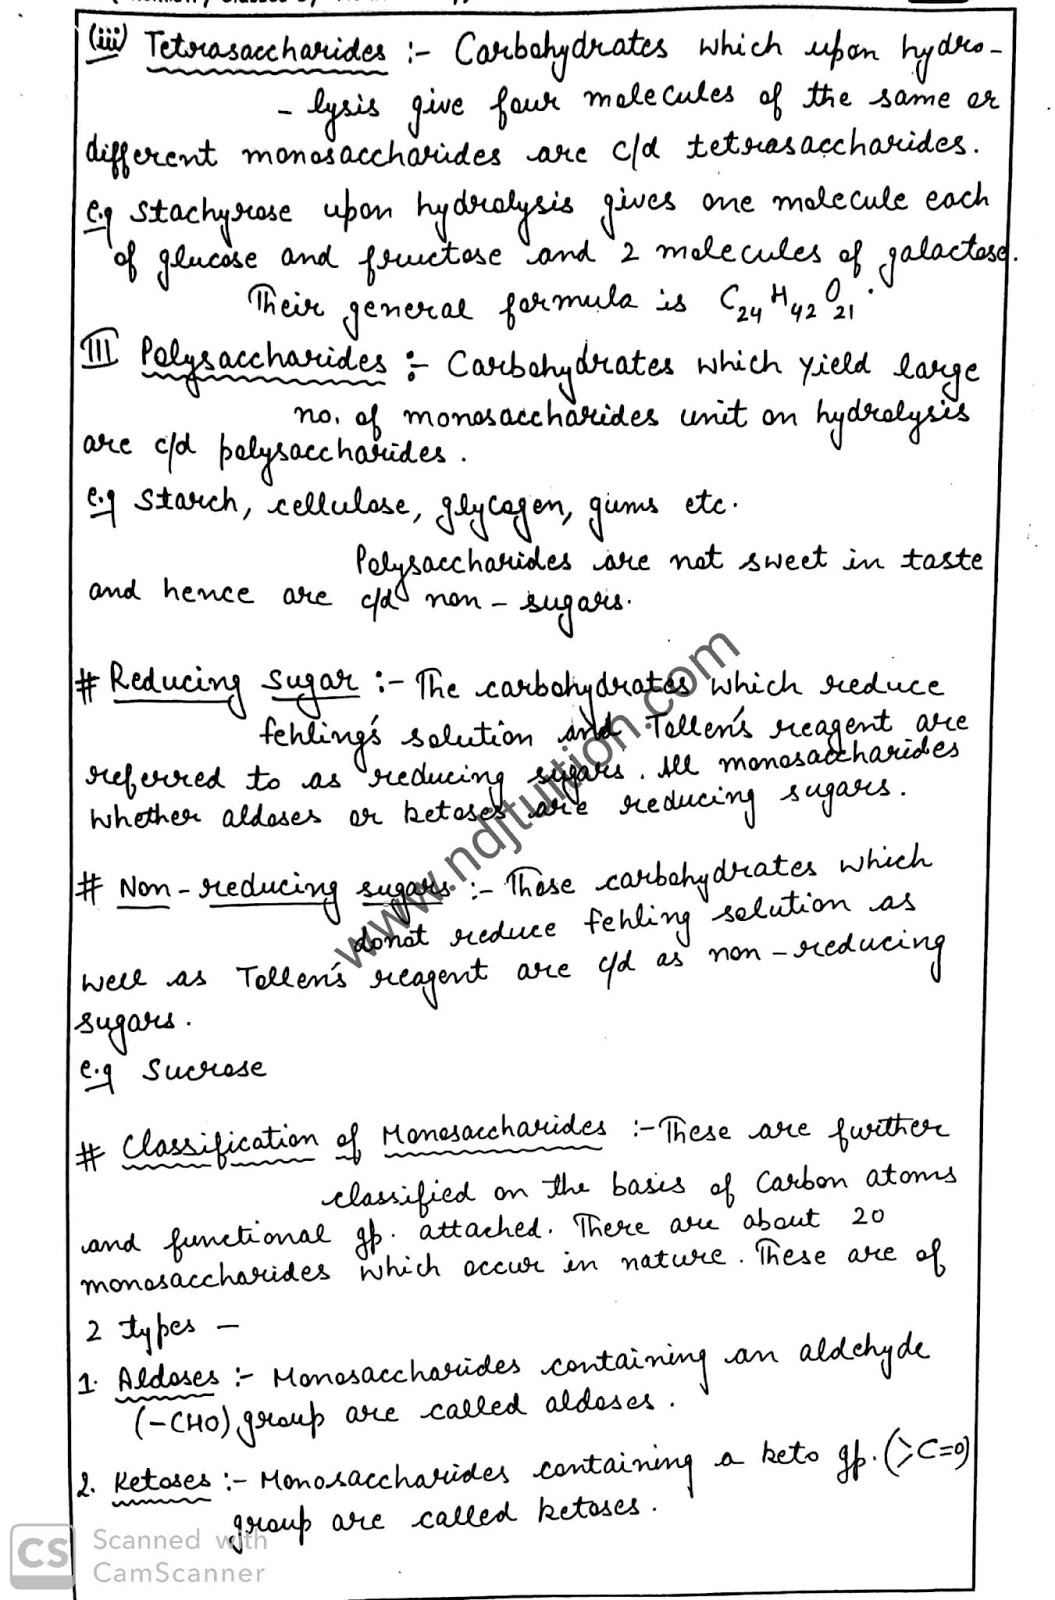 (iii) Tetrasaccharides :- Carbohydrates which upon hydro-
- lysis give four molecules of the same or
different monosaccharides are c/d tetrasaccharides.
e.g Stachyrose upon hydrolysis gives one molecule each
of glucose and fructose and 2 molecules of galactose.
Their general formula is C24 H42 O21.
III Polysaccharides :- Carbohydrates which yield large
no. of monosaccharides unit on hydrolysis
are c/d polysaccharides.
e.g Starch, cellulose, glycogen, gums etc.
Polysaccharides are not sweet in taste
and hence are c/d non - sugars.
# Reducing sugar :- The carbohydrates which reduce
fehling's solution and Tollen's reagent are
referred to as reducing sugars. All monosaccharides
whether aldoses or ketoses are reducing sugars.
# Non - reducing sugars :- Those carbohydrates which
donot reduce fehling solution as
well as Tollen's reagent are c/d as non - reducing
sugars.
e.g Sucrose
# Classification of Monosaccharides :- These are further
classified on the basis of Carbon atoms
and functional gp. attached. There are about 20
monosaccharides which occur in nature. These are of
2 types -
1. Aldoses :- Monosaccharides containing an aldehyde
(-CHO) group are called aldoses.
2. Ketoses :- Monosaccharides containing a keto gp. (>C=O)
group are called ketoses.
www.ndjtuition.com
CS Scanned with
CamScanner